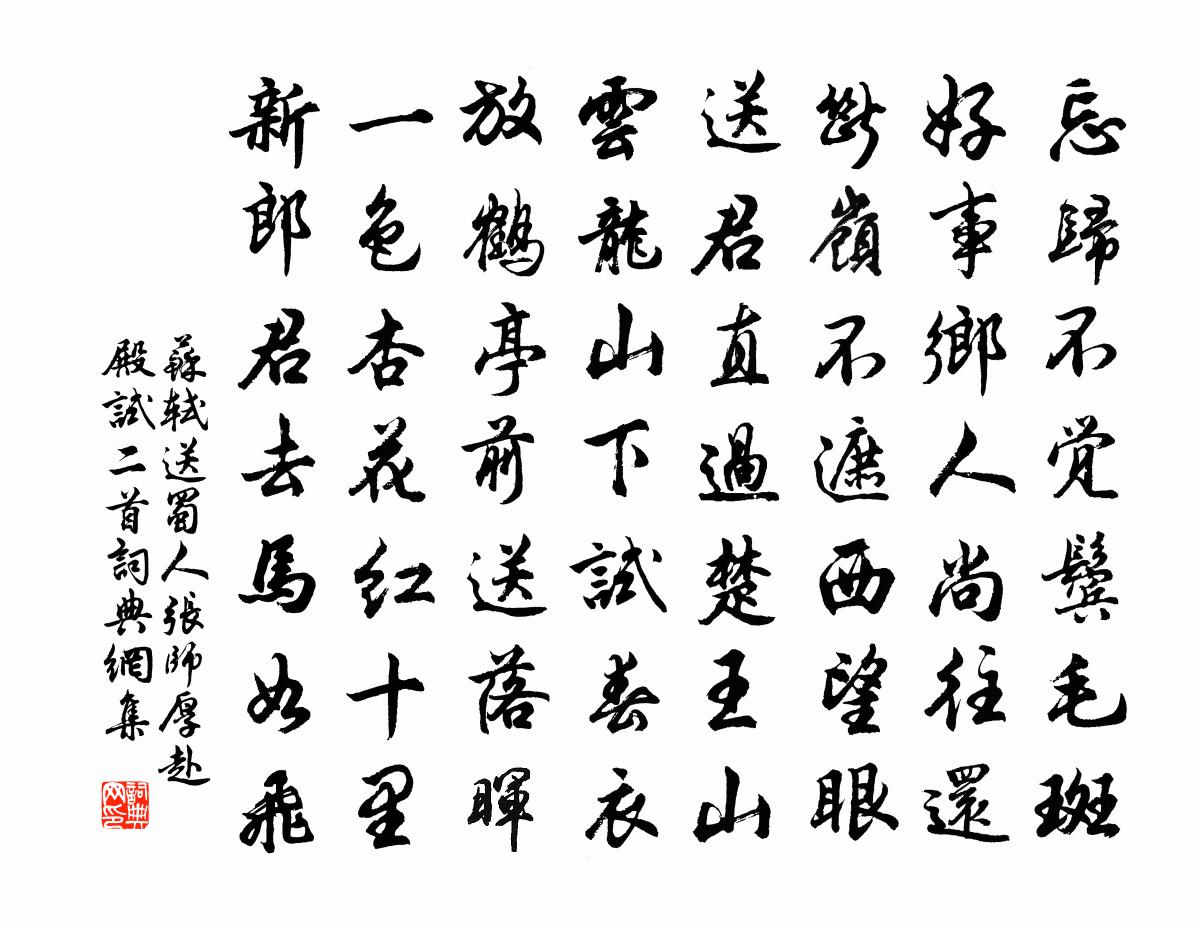 忘歸不觉鬓毛斑
好事鄉人尚往還
斷嶺不遮西望眼
送君直過楚王山
雲龍山下試春衣
放鶴亭前送落暉
一色杏花红十里
新郎君去馬如飛
蘇軾送蜀人張師厚赴
殿試二首詞典網集
詞典
网印